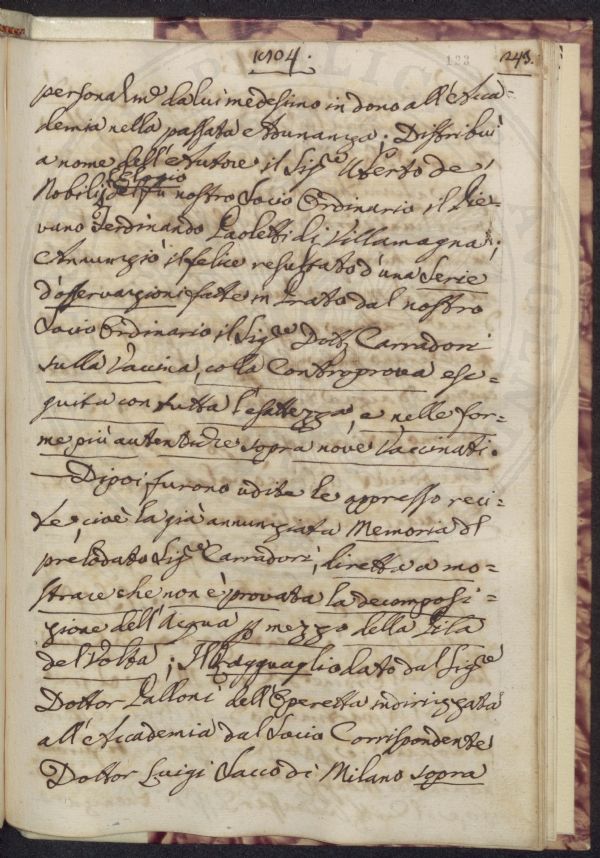 1804.
123
243.
personalm.e da lui medesimo in dono all'Acca=
demia nella passata Adunanza; Distribuì
a nome dell'Autore il Sig.e Uberto de'
Nobili, Elogio del fu nostro Socio Ordinario il Pie=
vano Ferdinando Paoletti di Villamagna;
Annunziò il felice resultato d'una Serie
d'osservazioni fatte in Prato dal nostro
Socio Ordinario il Sig.e Dott. Carradori
sulla Vaccina, colla Controprova ese=
guita con tutta l'esattezza, e nelle for=
me più autentiche sopra nove Vaccinati.
Dipoi furono udite le appresso reci=
te, cioè la già annunziata Memoria del
prelodato Sig.e Carradori, diretta a mo=
strare che non è provata la decomposi=
zione dell'Acqua p mezzo della Pila
del Volta; Il Ragguaglio dato dal Sig.e
Dottor Palloni dell'Operetta indirizzata
all'Accademia dal Socio Corrispondente
Dottor Luigi Sacco di Milano sopra